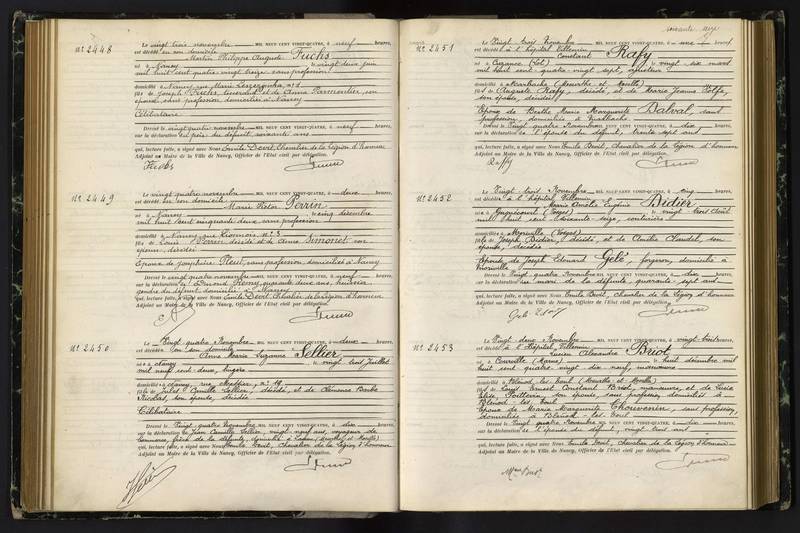 N° 2448
Le vingt trois novembre MIL NEUF CENT VINGT-QUATRE, à neuf heures,
est décédé en son domicile
Martin Philippe Auguste Fuchs
né à Nancy le vingt deux juin
mil huit cent quatre vingt treize sans profession
domicilié à Nancy rue Marie Leszczinska, n° 1
fils de Joseph Fuchs, et de Anna Parmentier, son
épouse, sans profession domiciliés à Nancy
Célibataire
Dressé le vingt quatre novembre MIL NEUF CENT VINGT-QUATRE, à neuf heures,
sur la déclaration du père du défunt, soixante ans
qui, lecture faite, a signé avec Nous Emile Devit, Chevalier de la Légion d'honneur
Adjoint au Maire de la Ville de Nancy, Officier de l'Etat civil par délégation.
Fuchs
N° 2449
Le vingt quatre novembre MIL NEUF CENT VINGT-QUATRE, à deux heures,
est décédé en son domicile
Marie Victor Perrin
né à Nancy le cinq décembre
mil huit cent cinquante deux, sans profession
domicilié à Nancy, rue n° 3
fils de Louis Perrin décédé et de Anne Simonet son
épouse, décédée
Epoux de Joséphine sans profession, domiciliée à Nancy
Dressé le vingt quatre novembre MIL NEUF CENT VINGT-QUATRE, à neuf heures,
sur la déclaration de Edmond Remy, quarante deux ans,
gendre du défunt domicilié à Nancy
qui, lecture faite, a signé avec Nous Emile Devit, Chevalier de la Légion d'honneur
Adjoint au Maire de la Ville de Nancy, Officier de l'Etat civil par délégation.
N° 2450
Le Vingt quatre Novembre MIL NEUF CENT VINGT-QUATRE, à deux heures,
est décédée en son domicile
Anne Marie Suzanne Sellier
née à Nancy le vingt trois Juillet
mil neuf cent deux, lingère
domiciliée à Nancy, rue n° 19
fille de Jules Camille Sellier, décédé, et de Clémence Barbe
Nicolas, son épouse, décédée
Célibataire
Dressé le Vingt quatre Novembre MIL NEUF CENT VINGT-QUATRE, à dix heures,
sur la déclaration de Jean Camille Sellier, vingt neuf ans, voyageur de
commerce, frère de la défunte, domicilié à (Meurthe et Moselle)
qui, lecture faite, a signé avec Nous Emile Devit, Chevalier de la Légion d'honneur
Adjoint au Maire de la Ville de Nancy, Officier de l'Etat civil par délégation.
N° 2451
Le Vingt trois Novembre MIL NEUF CENT VINGT-QUATRE, à une heures,
est décédé à l'hôpital Villemin
Constant Rafy
né à Cuzance (Lot) le vingt six mars
mil huit cent quatre vingt sept,
domicilié à Marbache (Meurthe et Moselle)
fils de Auguste Rafy, décédé, et de Marie Jeanne
son épouse, décédée
Epoux de Berthe Marie Marguerite Dalval, sans
profession, domiciliée à Marbache
Dressé le Vingt quatre Novembre MIL NEUF CENT VINGT-QUATRE, à dix heures,
sur la déclaration de l'épouse du défunt, trente sept ans
qui, lecture faite, a signé avec Nous Emile Devit, Chevalier de la Légion d'honneur
Adjoint au Maire de la Ville de Nancy, Officier de l'Etat civil par délégation.
N° 2452
Le Vingt trois Novembre MIL NEUF CENT VINGT-QUATRE, à cinq heures,
est décédée à l'hôpital Villemin
Marie Amélie Eugénie Didier
née à (Vosges) le vingt trois Août
mil huit cent soixante seize, couturière
domiciliée à (Vosges)
fille de Joseph Didier, décédé, et de Amélie Claudel, son
épouse, décédée
Epouse de Joseph Edouard Gelé, forgeron, domicilié à
Dressé le Vingt quatre Novembre MIL NEUF CENT VINGT-QUATRE, à dix heures,
sur la déclaration du mari de la défunte, quarante sept ans
qui, lecture faite, a signé avec Nous Emile Devit, Chevalier de la Légion d'honneur
Adjoint au Maire de la Ville de Nancy, Officier de l'Etat civil par délégation.
N° 2453
Le Vingt deux Novembre MIL NEUF CENT VINGT-QUATRE, à vingt trois heures,
est décédé à l'Hôpital Villemin
Lucien Alexandre Briot
né à Courville (Marne) le huit décembre mil
huit cent quatre vingt dix neuf, manœuvre
domicilié à Blénod les Toul (Meurthe et Moselle)
fils de Louis Ernest Constant Briot, manœuvre, et de Lucie
Elise son épouse, sans profession, domiciliés à
Blénod les Toul
Epoux de Marie Marguerite Chouvenin, sans profession,
domiciliée à Blénod les Toul
Dressé le Vingt quatre Novembre MIL NEUF CENT VINGT-QUATRE, à dix heures,
sur la déclaration de l'épouse du défunt, vingt trois ans
qui, lecture faite, a signé avec Nous Emile Devit, Chevalier de la Légion d'honneur
Adjoint au Maire de la Ville de Nancy, Officier de l'Etat civil par délégation.
Mme Briot